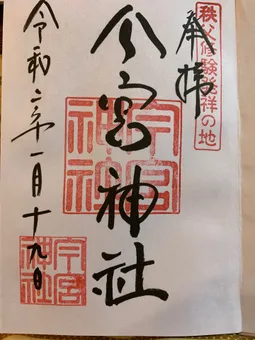 秩父修験発祥の地
奉拝
今宮神社
今宮
神社
令和二年一月十九日
今宮
神社